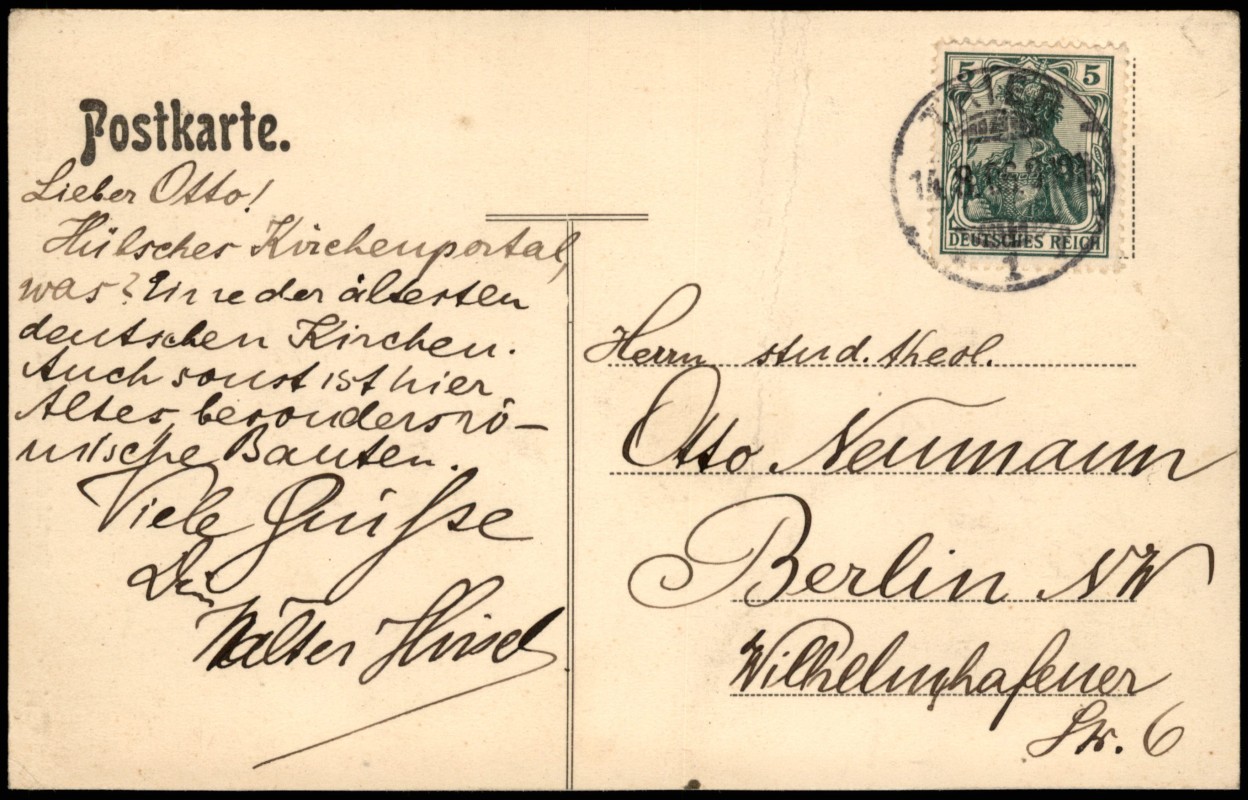 Postkarte.
Lieber Otto!
Hübsches Kirchenportal,
was? Eine der ältesten
deutschen Kirchen.
Auch sonst ist hier
Altes, besonders rö-
mische Bauten.
Viele Grüße
Dein
Walter Hirsch
5 5
DEUTSCHES REICH
TRIER
1
Herrn stud. theol.
Otto Neumann
Berlin NW
Wilhelmshafener
Str. 6